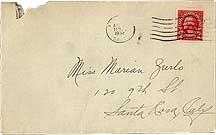 Miss Marian Zurlo
120 9th St
Santa Rosa Calif